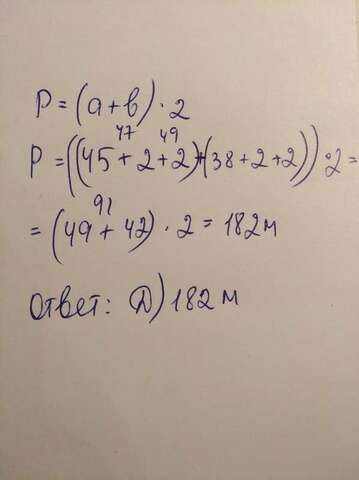 P = (a + b) · 2
47 49
P = ((45 + 2 + 2) + (38 + 2 + 2)) · 2 =
91
= (49 + 42) · 2 = 182 м
Ответ: Д) 182 м